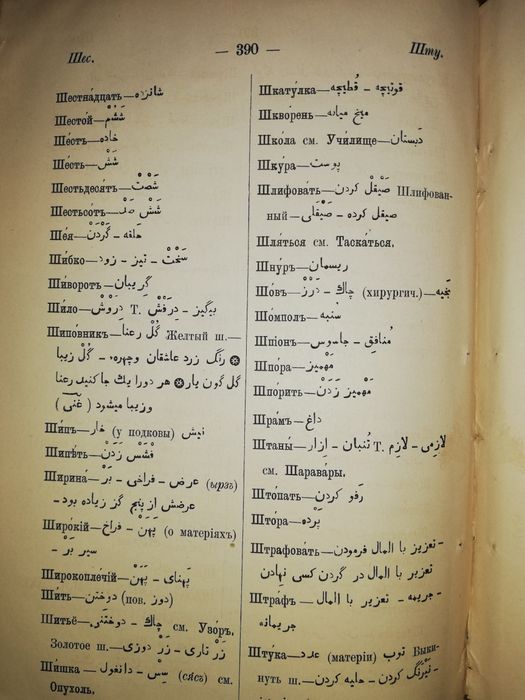 Шес.
— 390 —
Шту.
Шестна́дцать—شانزده
Шесто́й—شَشُم
Шестъ—خاده
Шесть—شَش
Шестьдеся́тъ—شَصْت
Шестьсо́тъ—شَش صَد
Ше́я—گَرْدَن
Ши́бко—سَخْت - تیز - زود
Ши́воротъ—گریبان
Ши́ло—دِرَوْش Т. دِرَفْش - بیگیز
Шипо́вникъ—گُل رعنا Желтый ш.—
رنگ زرد عاشقان وچهره - گُل زیبا
گل گون یار هر دورا یك جا کنید رعنا
وزیبا میشود (غَنّی)
Шипъ—خار (у подковы) نیش
Шипѣ́ть—فَشَّس زَدَن
Ширина́—عرض - فراخی - بَر (ырз)
عرضش از پنج گز زیاده بود -
Широ́кій—پَهَن - فراخ (о матеріяхъ)
سیر بَر -
Широкопле́чій—پَهَن - پَهنای
Шить—دوختن (пов. دوز)
Шитьё—دوختَنی - چاك см. Узо́ръ.
Золотое ш. زَر دوزی - زَر تاری -
Ши́шка—سِس - دانغول (сäсъ) см.
Опухоль.
Шкату́лка—قُطیچه - قوتیچه
Шкво́рень—میخ میانه
Шко́ла см. Учи́лище—دَبستان
Шку́ра—پوست
Шлифова́ть—صَیْقَل کردن Шлифован-
ный—صَیْقَلی - صیقل کرده
Шля́ться см. Таска́ться.
Шнуръ—ریسمان
Шовъ—دَرْز - چاك (хирургич.)—بَخیه
Шо́мполъ—سُنبه
Шпіо́нъ—جاسوس - مُنافِق
Шпо́ра—مَهْمیز
Шпо́рить—مَهْمیز زَدَن
Шрамъ—داغ
Штаны́—اِزار - تُنبان Т. لازِم - لازِمی
см. Шаравары.
Што́пать—رَفو کردن
Што́ра—پَرْده
Штрафова́ть—تعزیر با المال فرمودن -
تعزیر با المال در گردن کسی نهادن
Штрафъ—تعزیر با المال - جریمه -
جریمانه
Шту́ка—عدد (матеріи) توپ Выки-
нуть ш. حیله کردن - نَیْرَنگ کردن -